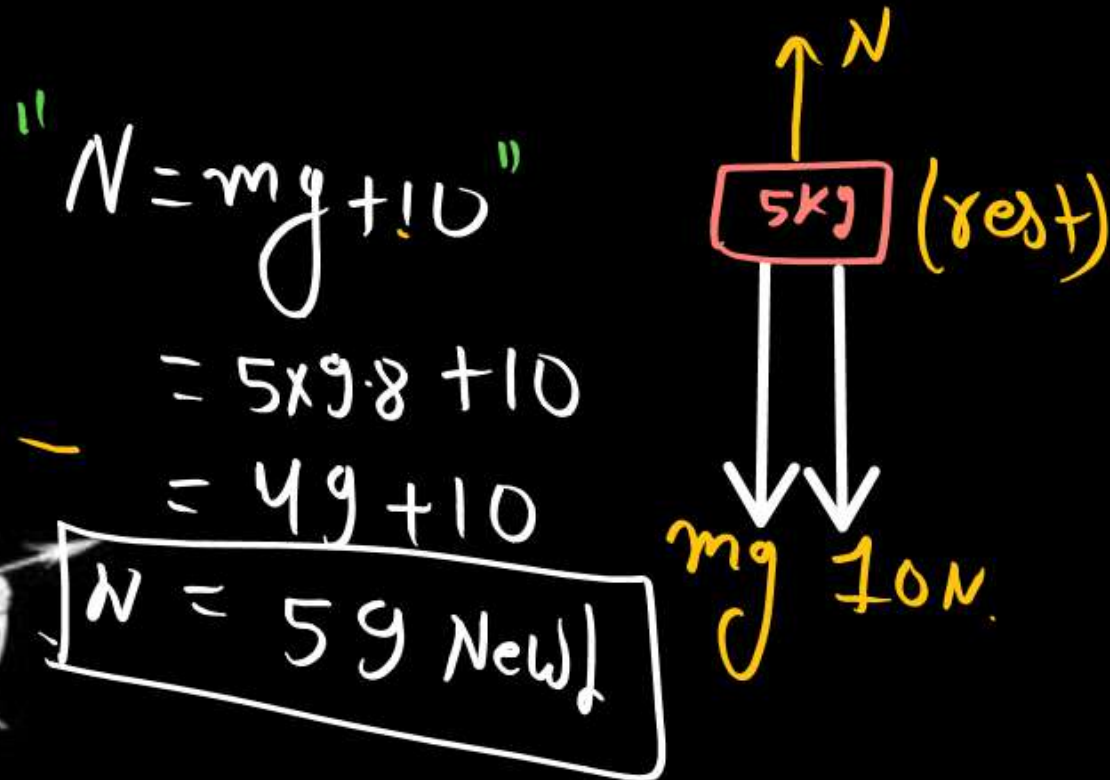 "N = mg + 10"
= 5x9.8 + 10
= 49 + 10
N = 59 Newt
N
5kg (rest)
mg 10N.